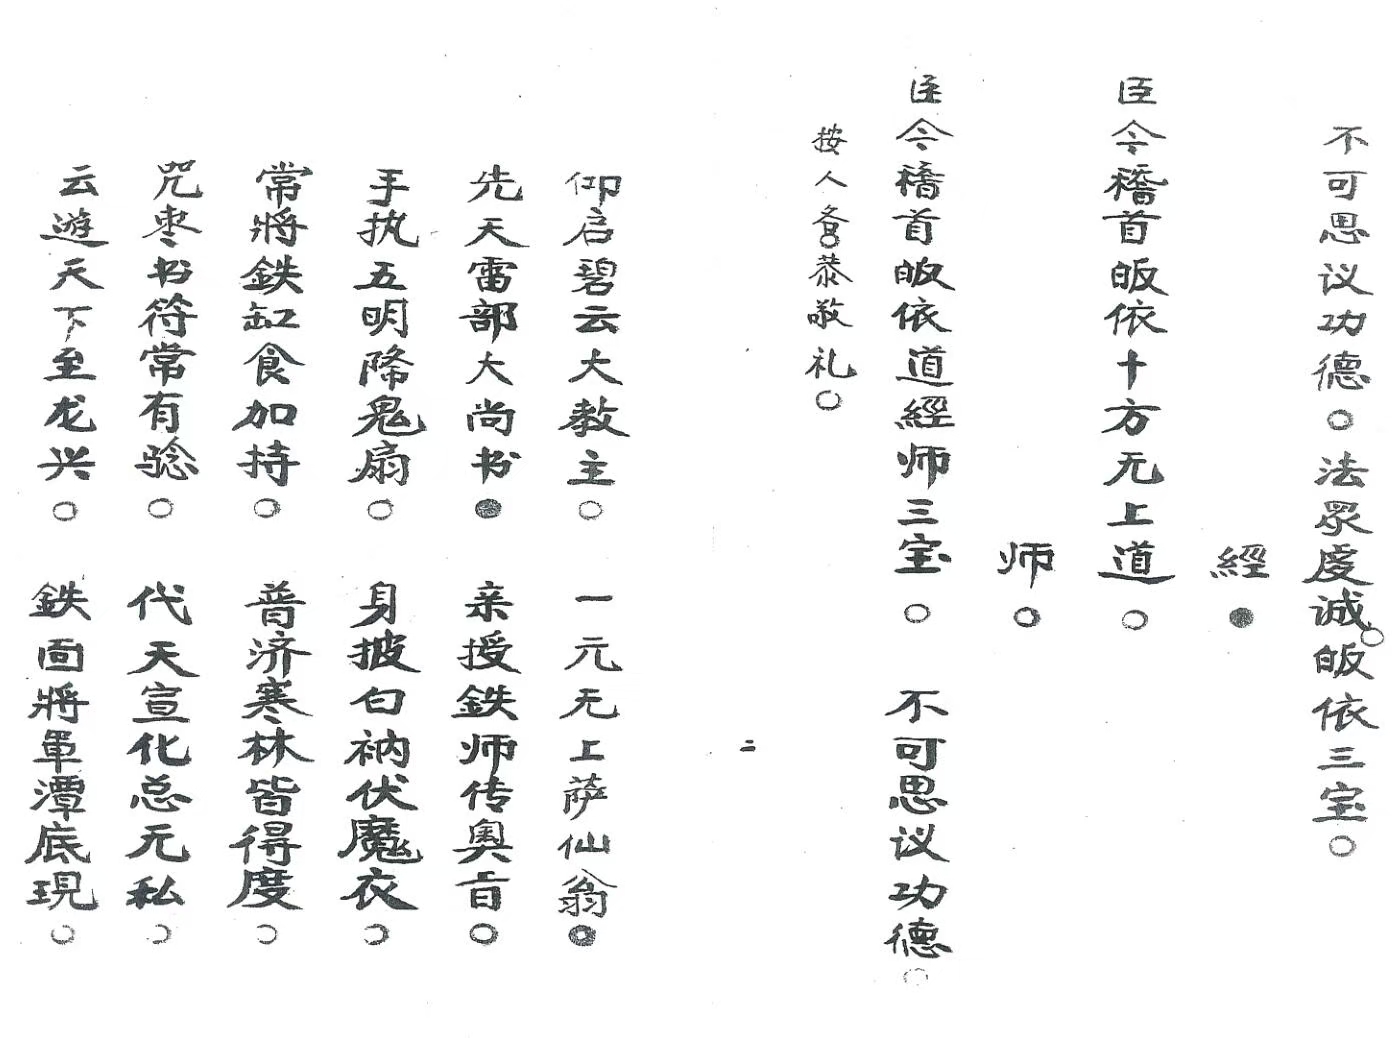 不可思议功德○法眾虔诚皈依三宝○
經●
臣今稽首皈依十方无上道○
师○
臣今稽首皈依道經师三宝○ 不可思议功德○
按人各恭敬礼○
二
仰启碧云大教主○ 一元无上萨仙翁●
先天雷部大尚书● 亲授鉄师传奥旨○
手执五明降鬼扇○ 身披白衲伏魔衣○
常將鉄缸食加持○ 普济寒林皆得度○
咒枣书符常有驗○ 代天宣化总无私○
云遊天下至龙兴○ 鉄面將軍潭底現○